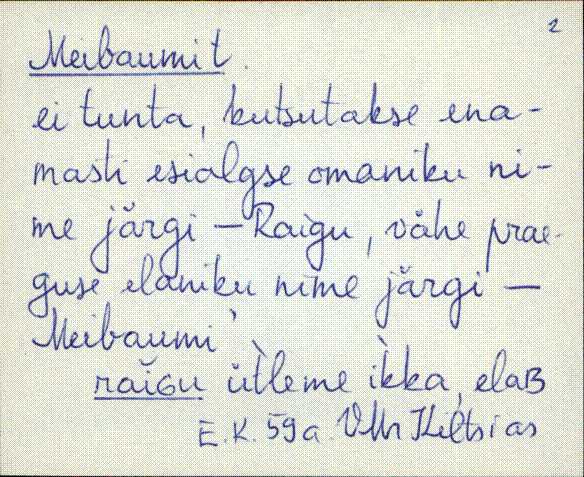 2
Meibaumit
ei tunta, kutsutakse ena-
masti esialgse omaniku ni-
me järgi – Raigu, vähe prae-
guse elaniku nime järgi –
Meibaumi
raĭɢu ùtleme ìkka, elaʙ
E.K. 59 a. VMr Kiltsi as